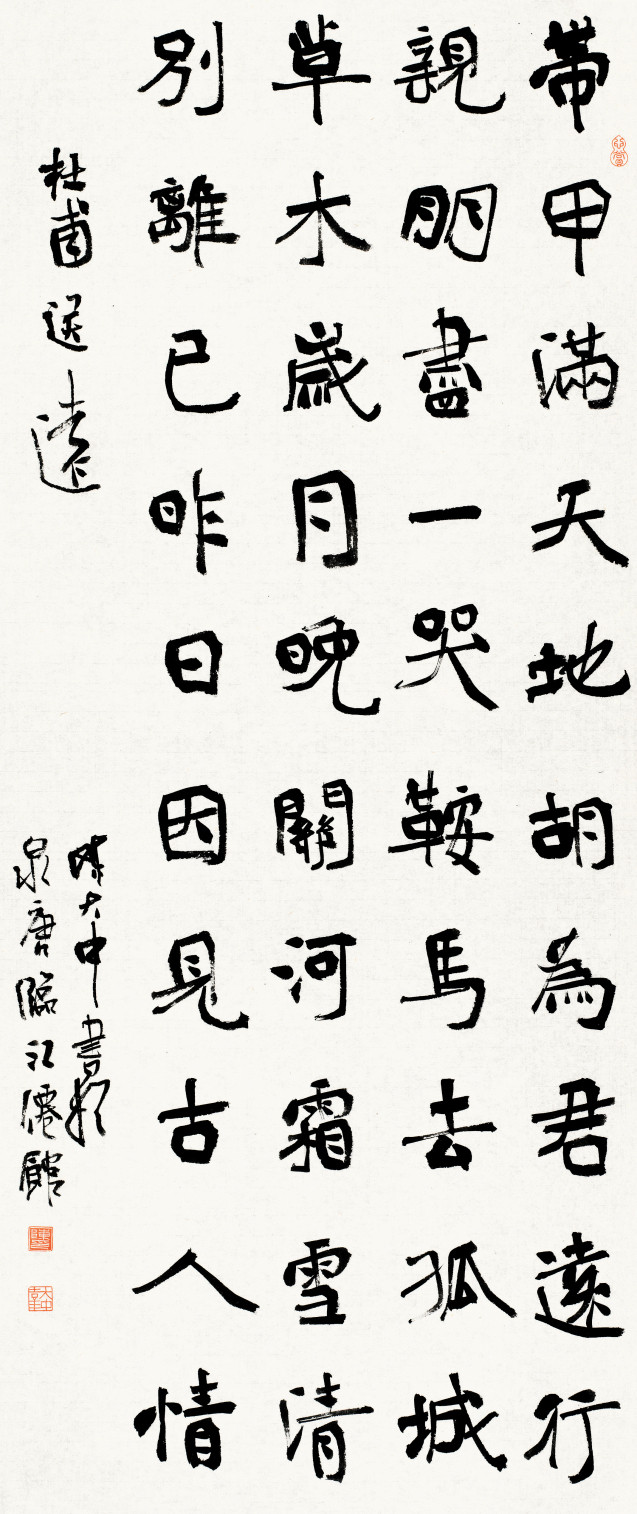 帶甲滿天地胡為君遠行
親朋盡一哭鞍馬去孤城
草木歲月晚關河霜雪清
別離已昨日因見古人情
杜甫送遠
陳大中書於
泉唐臨江僊館